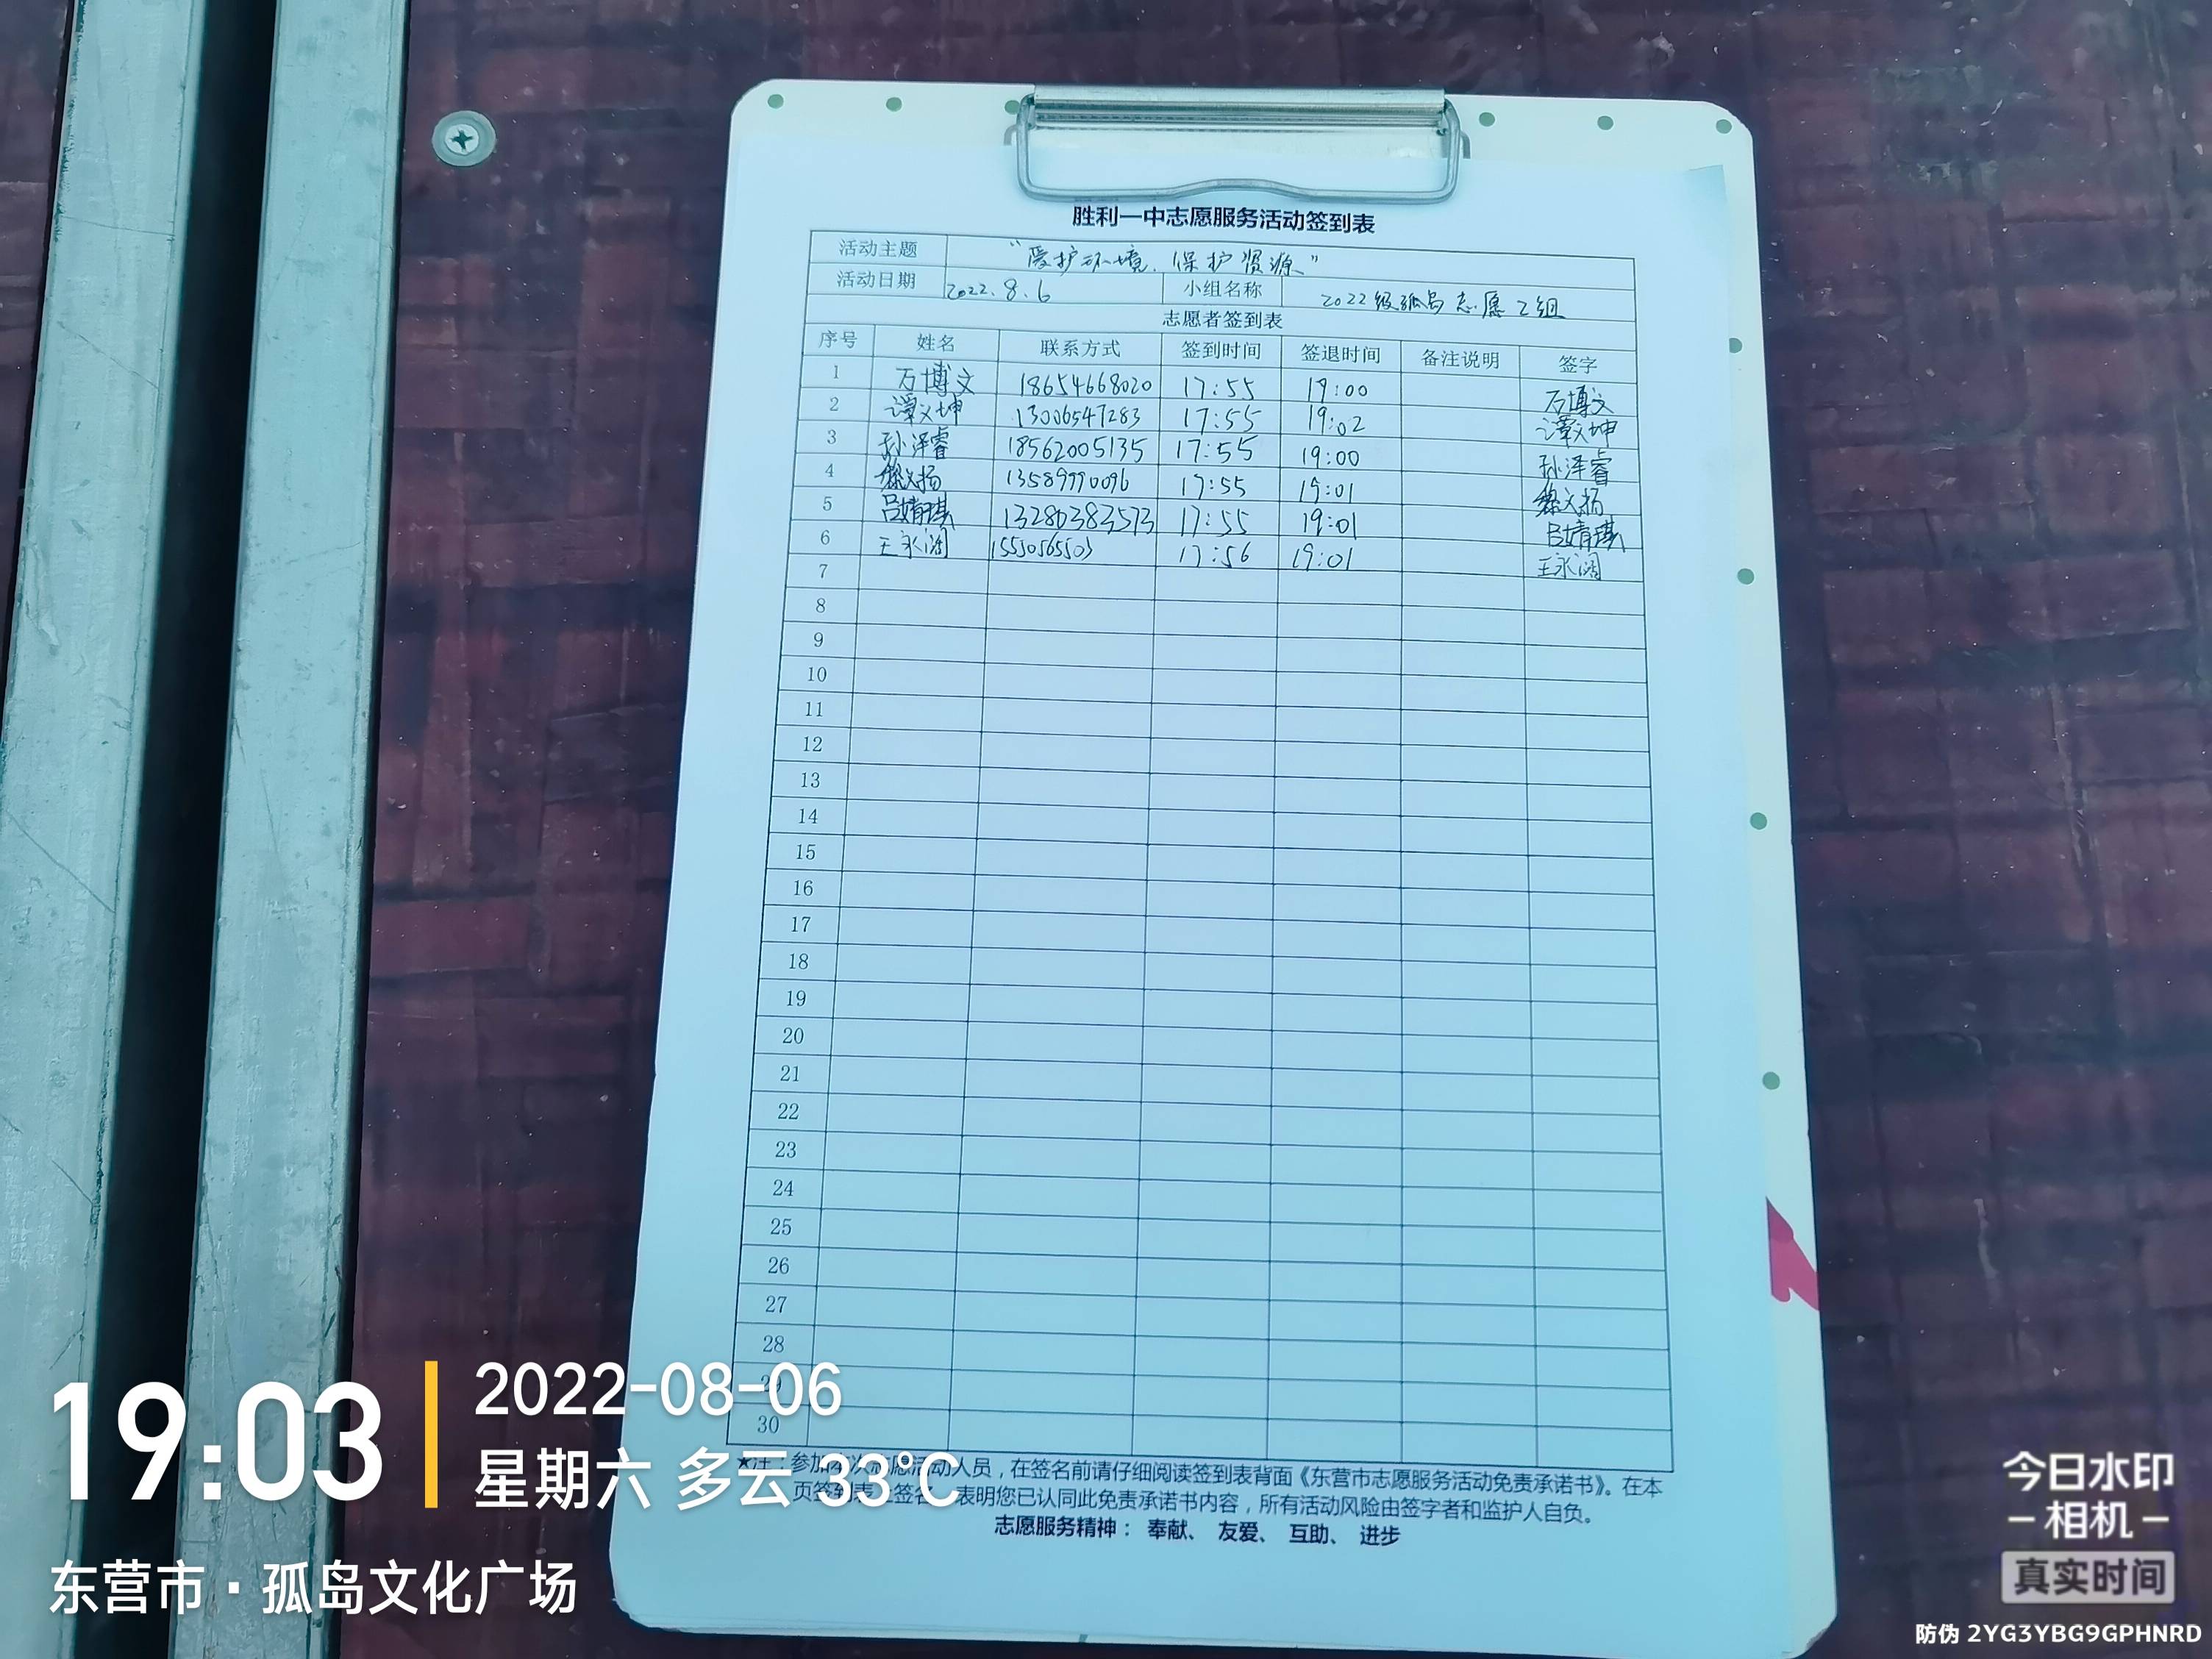 胜利一中志愿服务活动签到表
活动主题 “爱护环境、保护资源”
活动日期 2022.8.6 小组名称 2022级孤岛志愿乙组
志愿者签到表
序号 姓名 联系方式 签到时间 签退时间 备注说明 签字
1 万博文 18654668020 17:55 19:00 万博文
2 谭义坤 13006547283 17:55 19:02 谭义坤
3 孙泽睿 18562005135 17:55 19:00 孙泽睿
4 13589990096 17:55 19:01
5 吕婧琪 13280383573 17:55 19:01 吕婧琪
6 王永阔 15550565503 17:56 19:01 王永阔
7
8
9
10
11
12
13
14
15
16
17
18
19
20
21
22
23
24
25
26
27
28
29
30
★注：参加本次志愿活动人员，在签名前请仔细阅读签到表背面《东营市志愿服务活动免责承诺书》。在本
页签到表上签名，表明您已认同此免责承诺书内容，所有活动风险由签字者和监护人自负。
志愿服务精神： 奉献、 友爱、 互助、 进步
19:03
2022-08-06
星期六 多云 33℃
东营市·孤岛文化广场
今日水印
-相机-
真实时间
防伪 2YG3YBG9GPHNRD